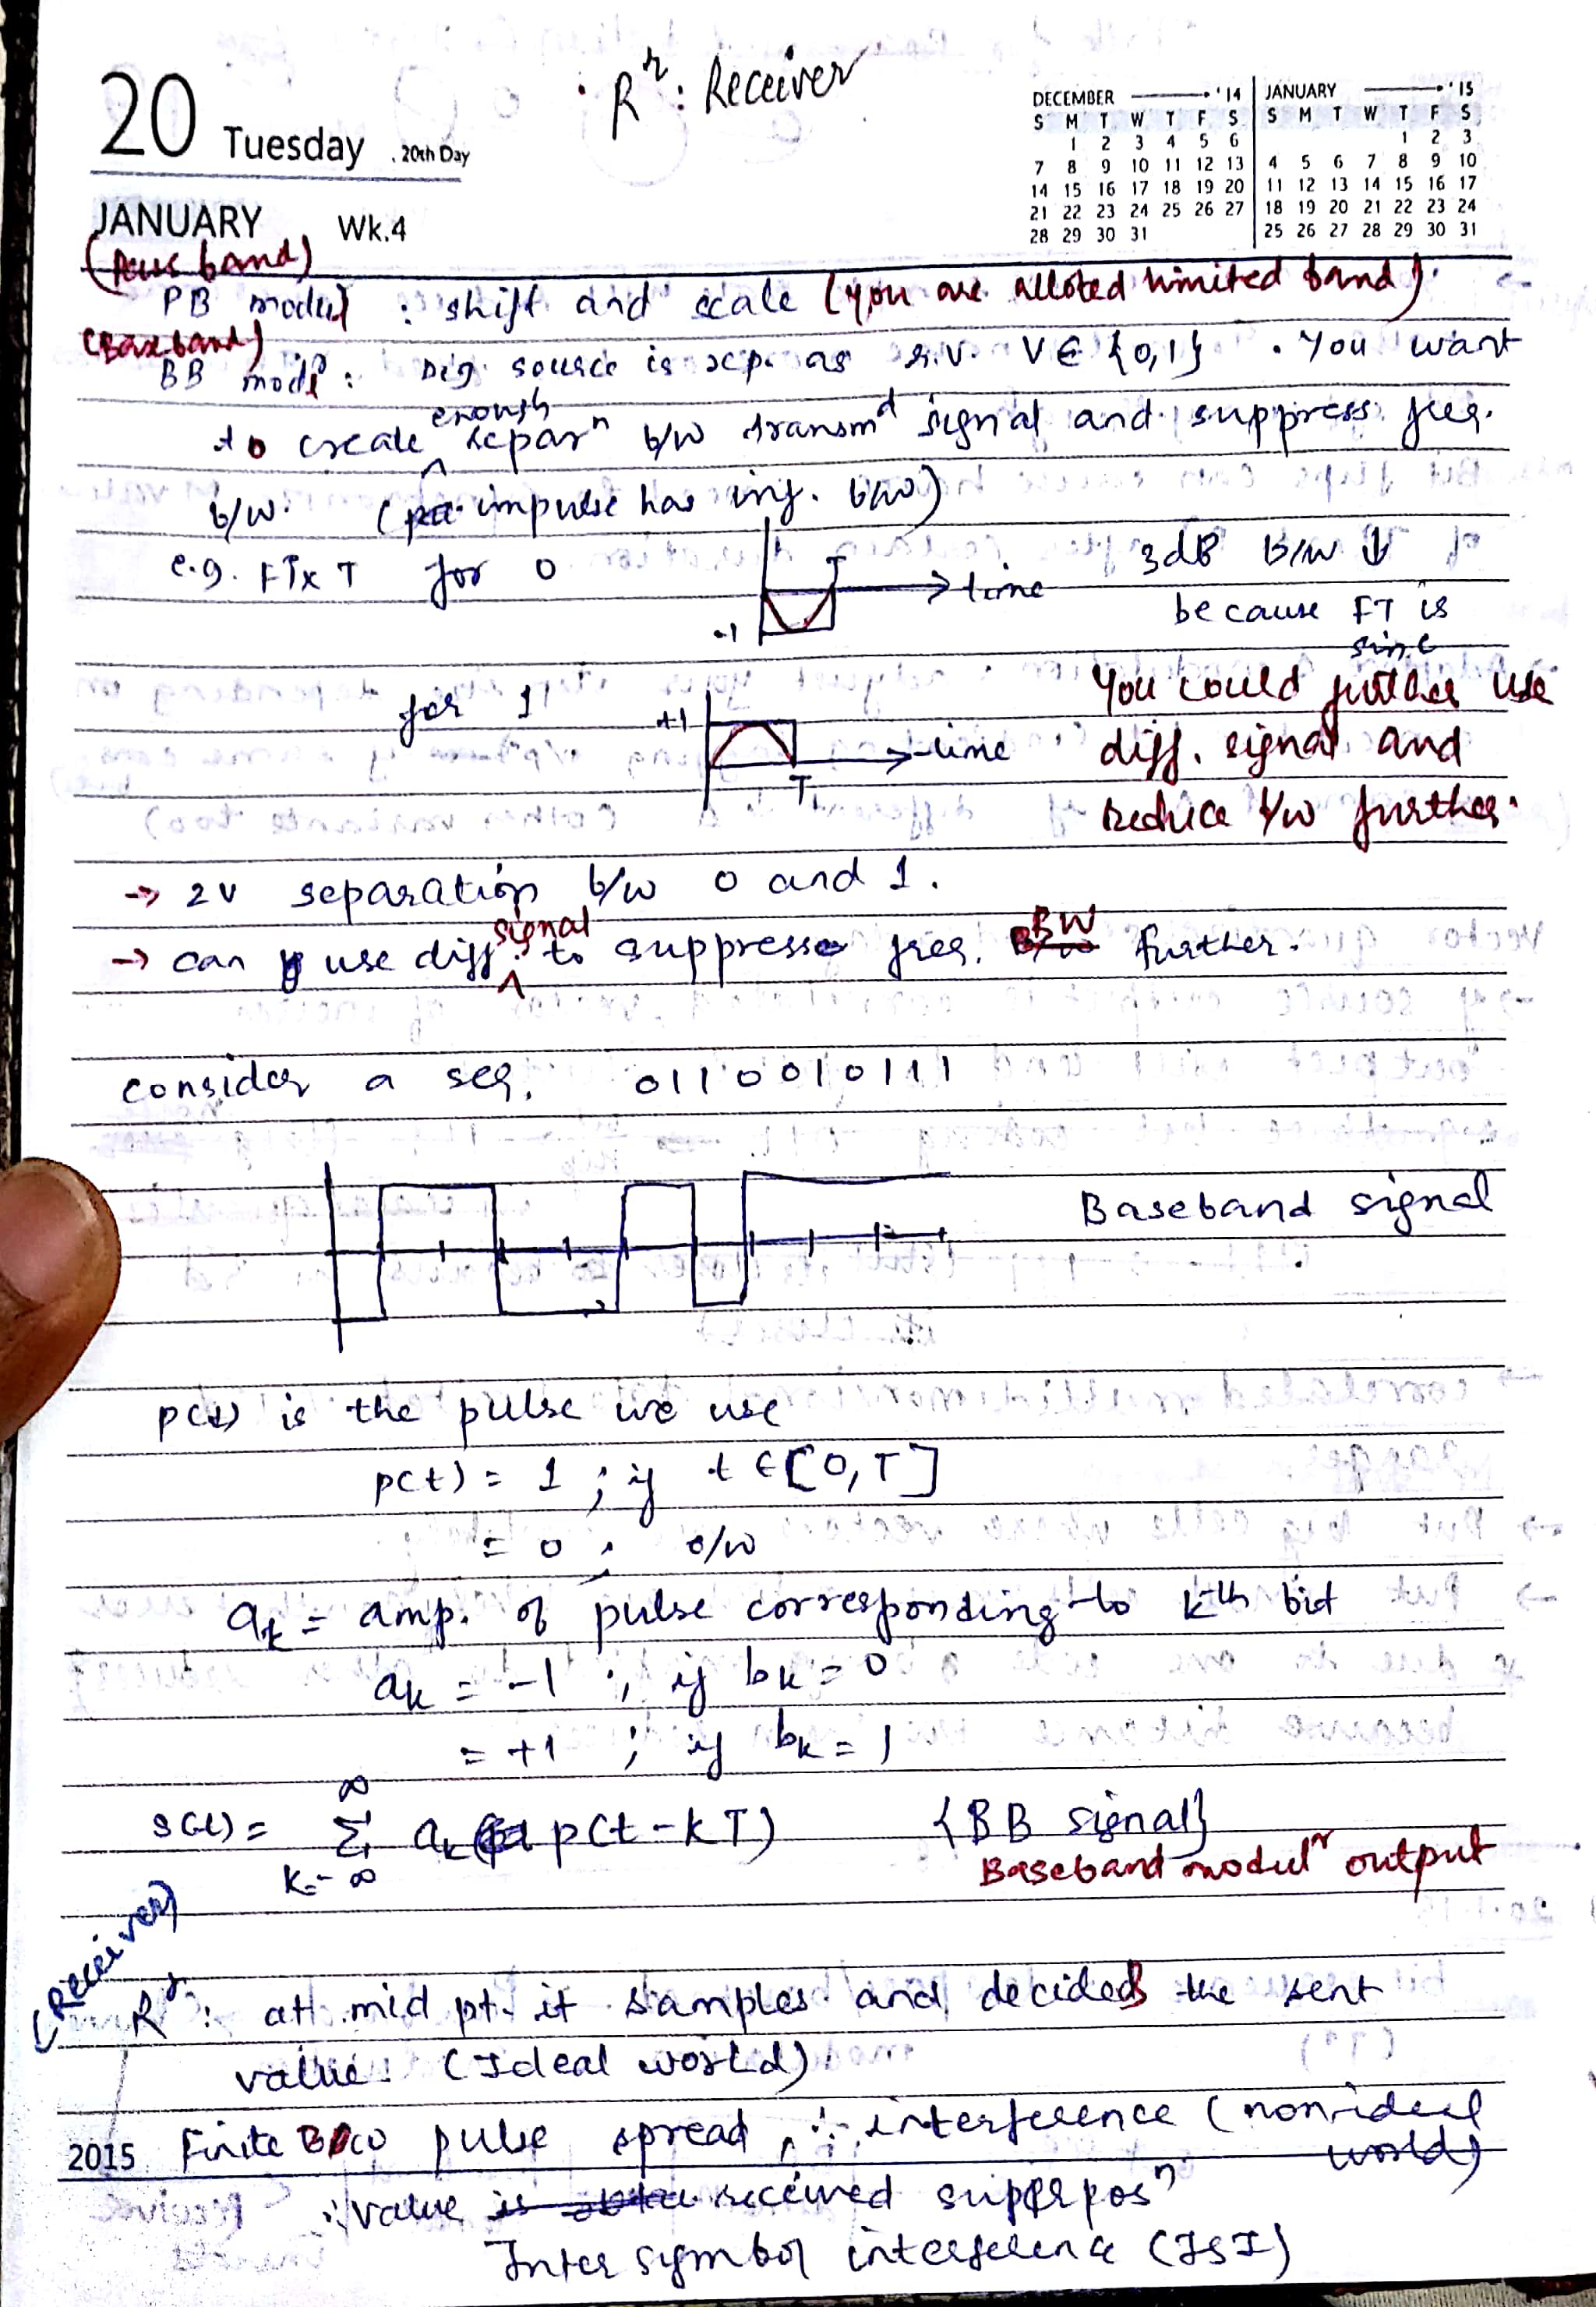 20 Tuesday 20th Day
JANUARY Wk.4
R^r : Receiver
DECEMBER '14
S M T W T F S
1 2 3 4 5 6
7 8 9 10 11 12 13
14 15 16 17 18 19 20
21 22 23 24 25 26 27
28 29 30 31
JANUARY '15
S M T W T F S
1 2 3
4 5 6 7 8 9 10
11 12 13 14 15 16 17
18 19 20 21 22 23 24
25 26 27 28 29 30 31
(Pass band)
PB modul : shift and scale (you are alloted limited band).
(Baseband)
BB mod : Dig. source is rep. as r.v. V ∈ {0,1} . You want
to create enough separⁿ b/w transm^d signal and suppress freq.
b/w. ( impulse has inf. b/w)
e.g. FTx T for 0
T
time
-1
3dB b/w ↓
because FT is
sinc
for 1
+1
time
T
You could further use
diff. signal and
reduce b/w further.
→ 2V separation b/w 0 and 1.
→ can use diff. signal to suppress freq. BW further.
consider a seq. 0110010111
Baseband signal
p(t) is the pulse we use
p(t) = 1 ; if t ∈ [0,T]
= 0 ; o/w
a_k = amp. of pulse corresponding to kth bit
a_k = -1 ; if b_k = 0
= +1 ; if b_k = 1
s(t) = ∑_{k=-∞}^{∞} a_k p(t-kT) {BB signal}
Baseband modul^r output
(Receiver)
R^r : at mid pt. it samples and decides the sent
value. (Ideal world)
2015 Finite BW pulse spread, ∴ interference (non-ideal
world)
∴ value received superposⁿ
Inter symbol interference (ISI)